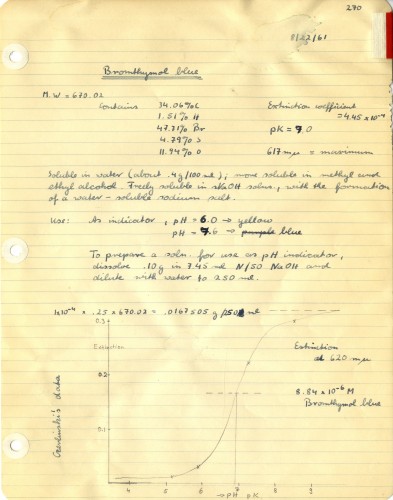 270
61
Bromthymol blue
M.W = 670.02
Contains 34.06% C
1.51% H
47.71% Br
4.79% S
11.94% O
Extinction coefficient
= 4.45 x 10⁻⁴
pK = 7.0
617 mµ = maximum
Soluble in water (about .4g/100 ml); more soluble in methyl and
ethyl alcohol. Freely soluble in NaOH solns., with the formation
of a water-soluble sodium salt.
Use: As indicator, pH = 6.0 → yellow
pH = 7.6 → purple blue
To prepare a soln. for use as pH indicator,
dissolve .10 g in 7.45 ml N/50 NaOH and
dilute with water to 250 ml.
1x10⁻⁴ = .25 x 670.02 = .0167505 g/250 ml
0.3
Extinction
Extinction
at 620 mµ
8.84 x 10⁻⁶ M
Bromthymol blue
0.1
data
4 5 6 7 8 9
→ pH, pK